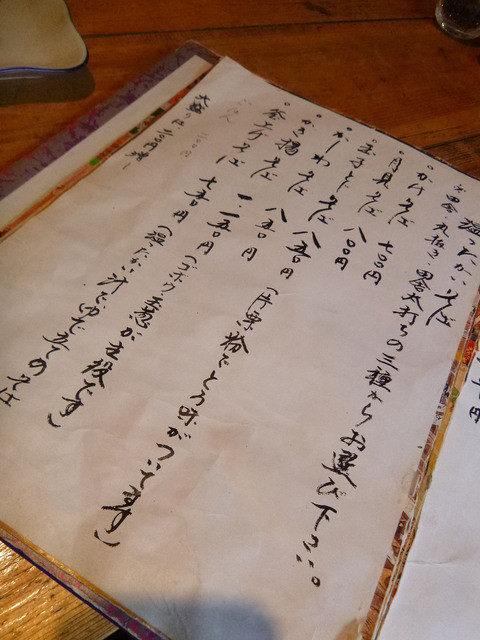 温ったかいそば
田舎・丸抜き・田舎太打ちの三種からお選び下さい。
・かけそば 七〇〇円
・月見そば 八〇〇円
・玉子とじそば 八五〇円（片栗粉でとろ味がついてます）
・かしわそば
・かき揚そば 一一五〇円（ゴボウ玉葱が主役です）
・釜上げそば 七五〇円（温ったかい汁でゆで立てのそば
ごはん 二〇〇円
大盛りは、二〇〇円増し
円